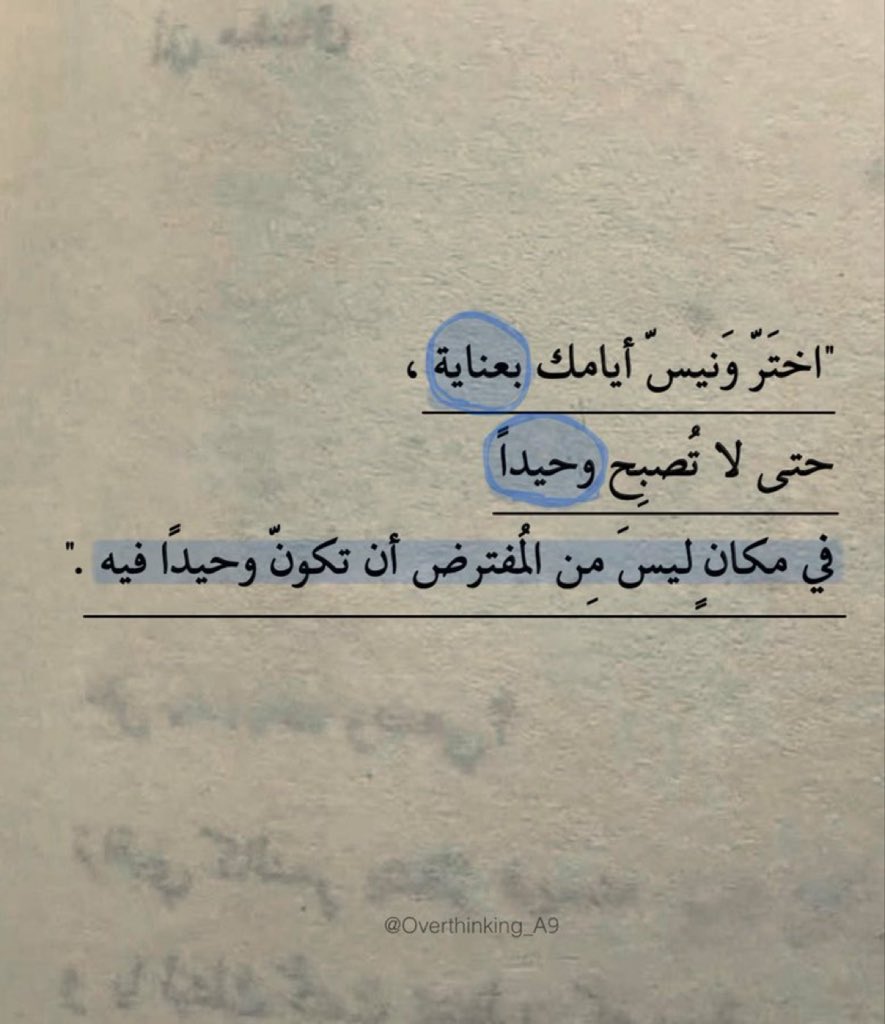 "اختَرّ وَنيسّ أيامك بعناية ،
حتى لا تُصبِح وحيداً
في مكانٍ ليسَ مِن المُفترض أن تكونّ وحيداً فيه ."
@Overthinking_A9